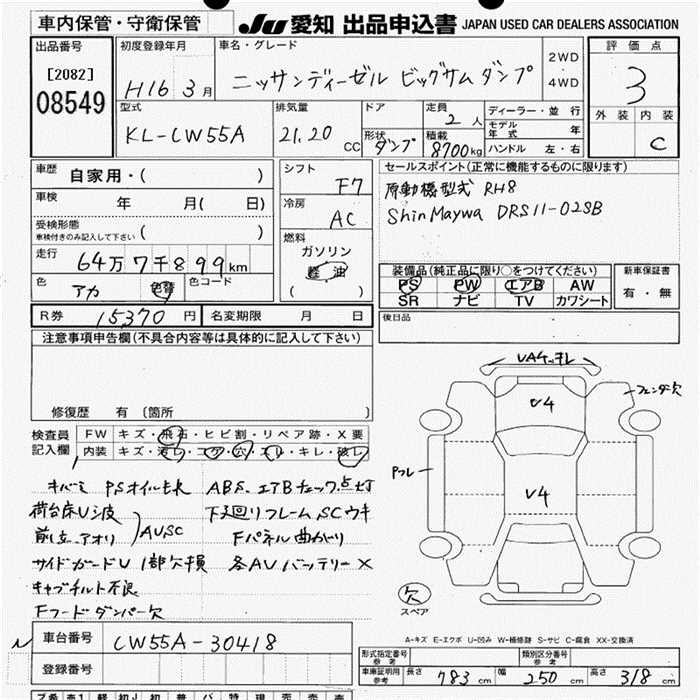 車内保管・守衛保管 JU 愛知 出品申込書 JAPAN USED CAR DEALERS ASSOCIATION
出品番号 初度登録年月 車名・グレード 評価点
[2082] H16 3月 ニッサンディーゼル ビッグサムダンプ 2WD・4WD 3
08549 型式 排気量 ドア 定員 2人 ディーラー・並行 外装 内装
KL-CW55A 21.20 CC 形状 ダンプ 積載 8700kg モデル年式 年 C
ハンドル 左・右
車歴 自家用・( ) シフト F7 セールスポイント(正常に機能するものに限ります)
車検 年 月( 日) 冷房 AC 原動機型式 RH8
受検形態 ( ) ShinMaywa DRS11-02SB
車検付きのみ記入して下さい
走行 64万7千899km 燃料 ガソリン
軽油
( )
色 アカ 色替 色コード
装備品(純正品に限り○をつけてください) 新車保証書
PS PW エアB AW 有・無
SR ナビ TV カワシート
R券 15370円 名変期限 月 日 後日品
注意事項申告欄(不具合内容等は具体的に記入して下さい)
修復歴 有 〔箇所 〕
検査員記入欄 FW キズ・飛石・ヒビ割・リペア跡・X要
内装 キズ・汚レ・コゲ・穴・スレ・キレ・破レ
キバミ PSオイルモレ ABS、エアBチェック点灯
荷台床U、波 下廻りフレームSCウキ
前、立、アオリ AU,SC Fパネル曲がり
サイドガードU 1部欠損 各AU バッテリーX
キャブチルト不良
Fフードダンパー欠
フェンダ欠
V4
Pフレ
V4
欠
スペア
A-キズ E-エクボ U-凹み W-補修跡 S-サビ C-腐食 XX-交換済
車台番号 CW55A-30418
登録番号
形式指定番号 参考 類別区分番号 参考
車庫証明用 参考 長さ 783cm 幅 250cm 高さ 318cm